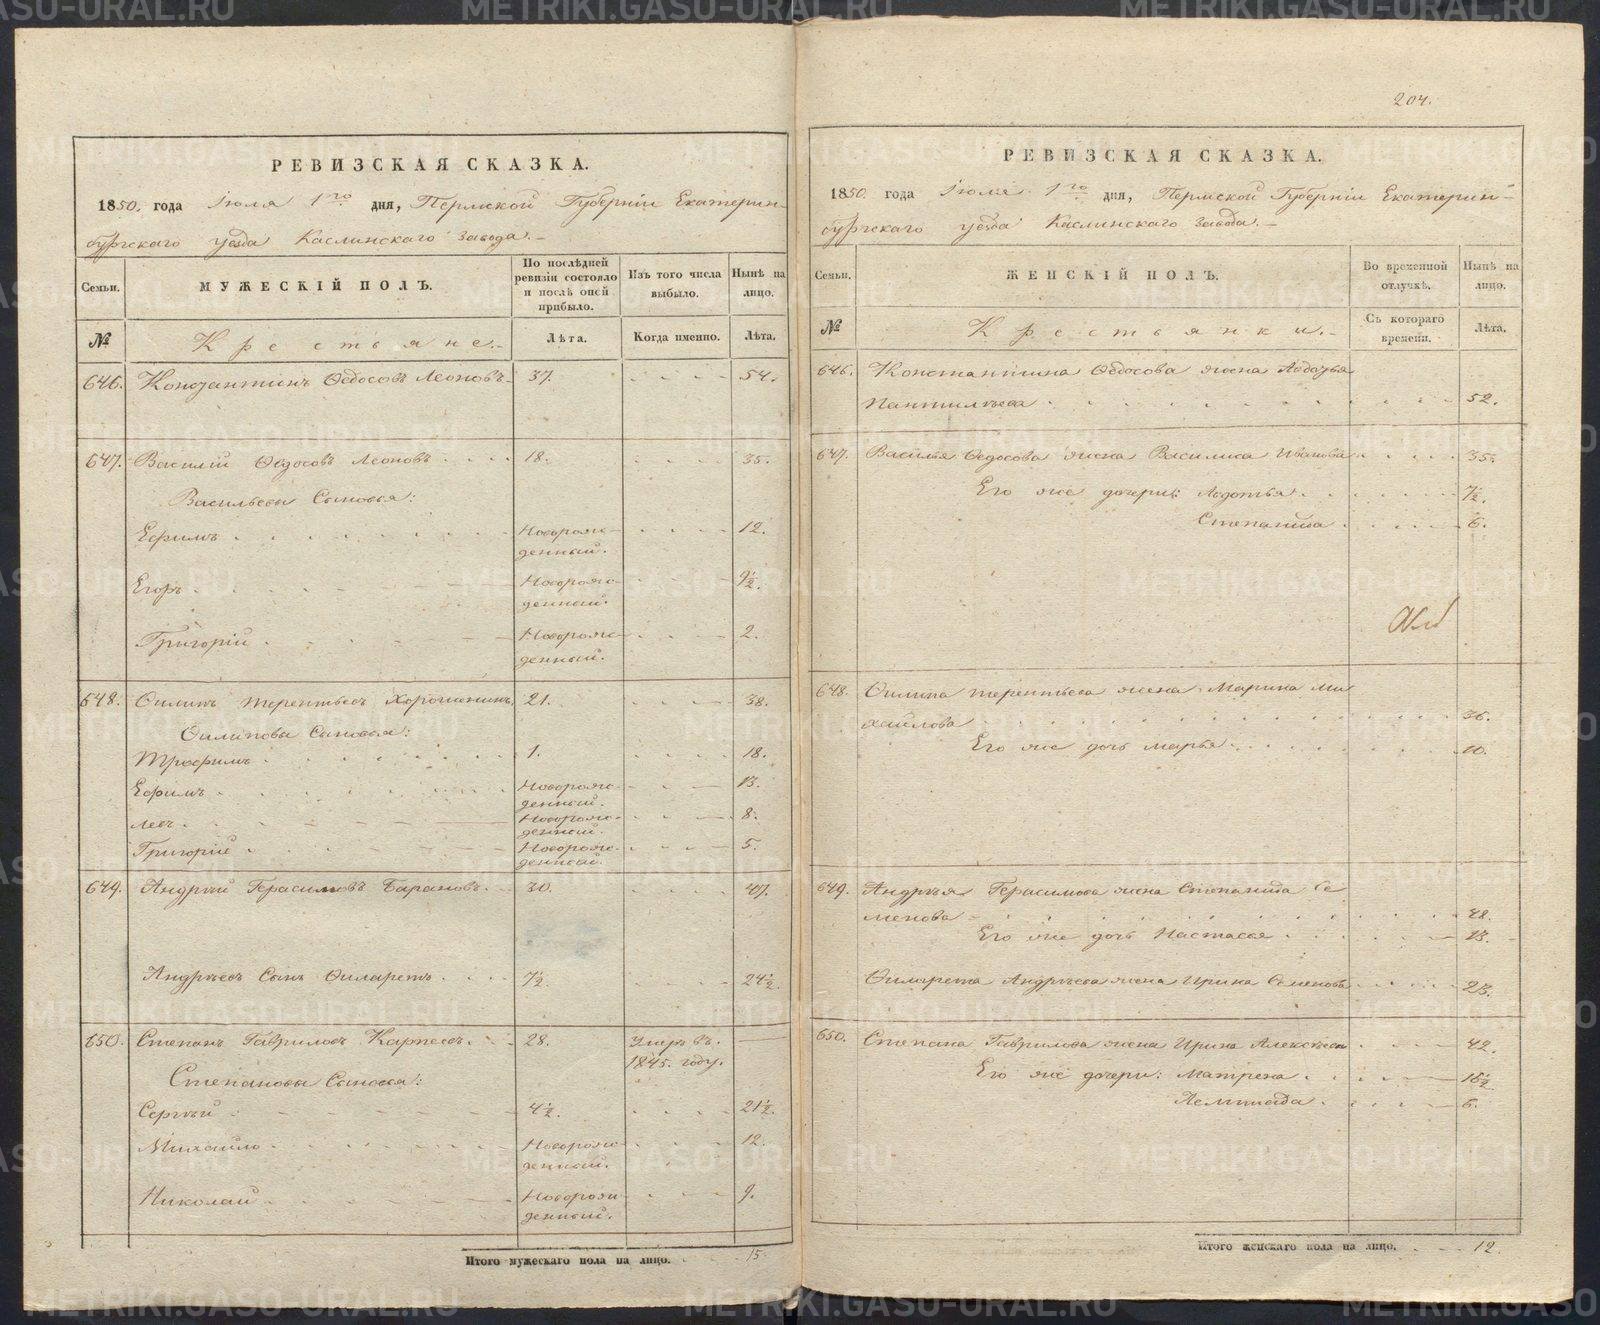 РЕВИЗСКАЯ СКАЗКА.
1850. года Іюля 1го дня, Пермской Губерніи Екатерин-
бургскаго уезда Каслинскаго завода.
Семьи.
МУЖЕСКІЙ ПОЛЪ.
По послѣдней ревизіи состояло и послѣ оней прибыло.
Изъ того числа выбыло.
Нынѣ на лицо.
№
Крестьяне.
Лѣта.
Когда именно.
Лѣта.
646. Константинъ Ѳедосовъ Леоновъ 37. 54.
647. Василій Ѳедосовъ Леоновъ 18. 35.
Васильевы Сыновья:
Ефимъ Новорож-
денный. 12.
Егоръ Новорож-
денный. 9½.
Григорій Новорож-
денный. 2.
648. Филипъ Терентьевъ Хорошенинъ 21. 38.
Филиповы Сыновья:
Трофимъ 1. 18.
Ефимъ Новорож-
денный. 13.
Левъ Новорож-
денный. 8.
Григорій Новорож-
денный. 5.
649. Андрѣй Герасимовъ Барановъ 30. 47.
Андрѣевъ Сынъ Филаретъ 7½. 24½.
650. Степанъ Гавриловъ Карпеевъ 28. Умръ въ
1845. году.
Степановы Сыновья:
Сергѣй 4½. 21½.
Михайло Новорож-
денный. 12.
Николай Новорож-
денный. 9.
Итого мужескаго пола на лицо. 15.
204.
РЕВИЗСКАЯ СКАЗКА.
1850. года Іюля 1го дня, Пермской Губерніи Екатерин-
бургскаго уезда Каслинскаго завода.
Семьи.
ЖЕНСКІЙ ПОЛЪ.
Во временной отлучкѣ.
Нынѣ на лицо.
№
Крестьянки.
Съ котораго времени.
Лѣта.
646. Константина Ѳедосова жена Авдотья
Пантилѣева 52.
647. Василья Ѳедосова жена Василиса Иванова 35.
Его же дочери: Авдотья 7½.
Степанида 6.
648. Филипа Терентьева жена Марина Ми
хайлова 36.
Его же дочь Марья 10.
649. Андрѣя Герасимова жена Степанида Се
менова 48.
Его же дочь Настасья 13.
Филарета Андрѣева жена Ирина Семенова 23.
650. Степана Гаврилова жена Ирина Алексѣева 42.
Его же дочери: Матрена 15½
6.
Итого женскаго пола на лицо. 12.
METRIKI.GASO-URAL.RU